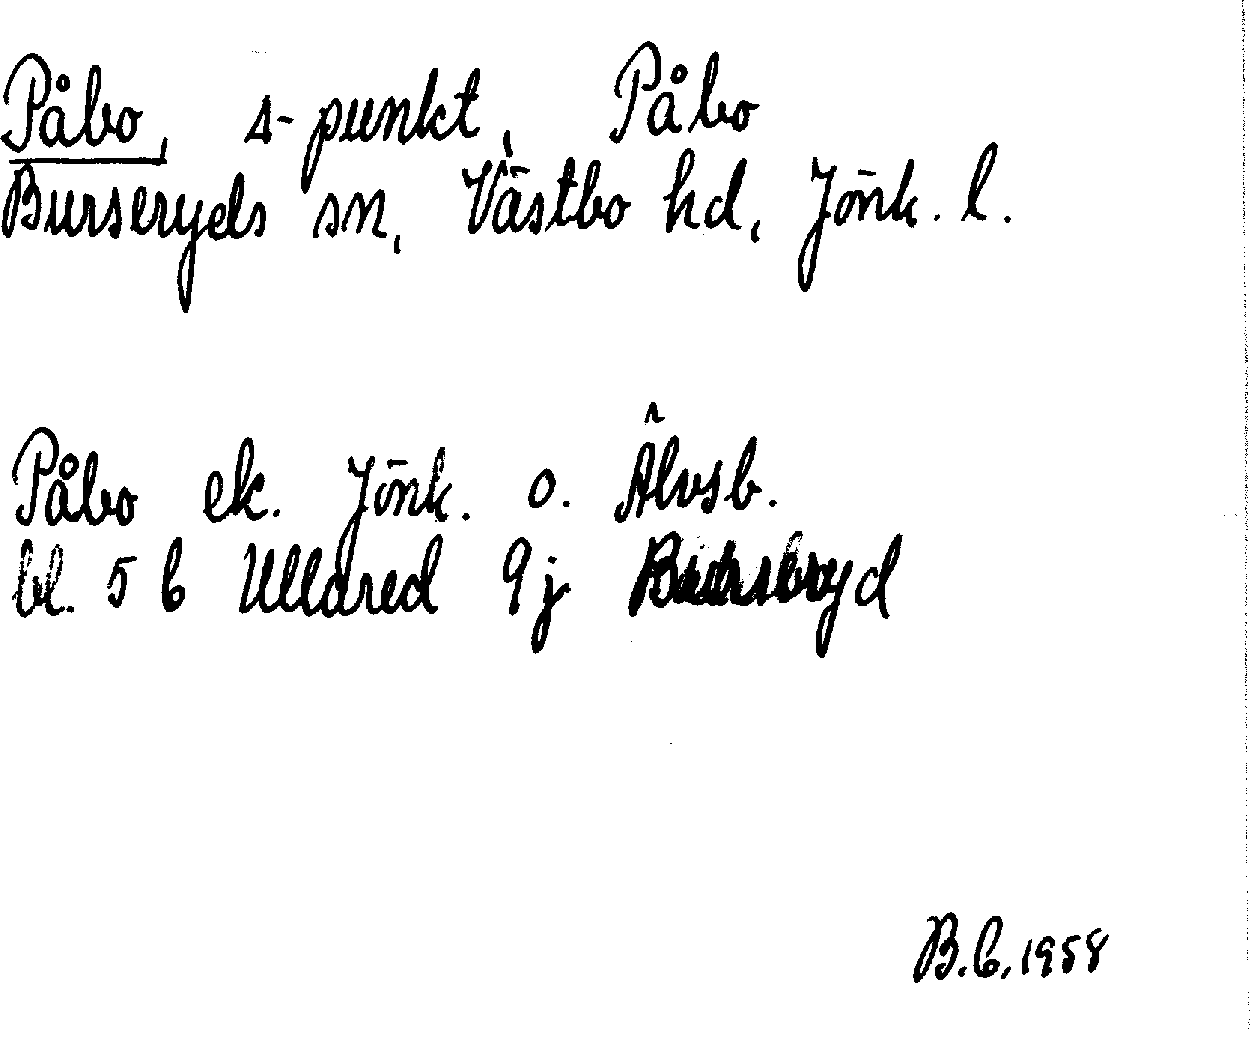 Påbo, s-punkt, Påbo
Burseryds sn, Västbo hd, Jönk. l.
Påbo ek. Jönk. o. Älvsb.
bl. 5 b Ulldred 9j
B.b. 1958